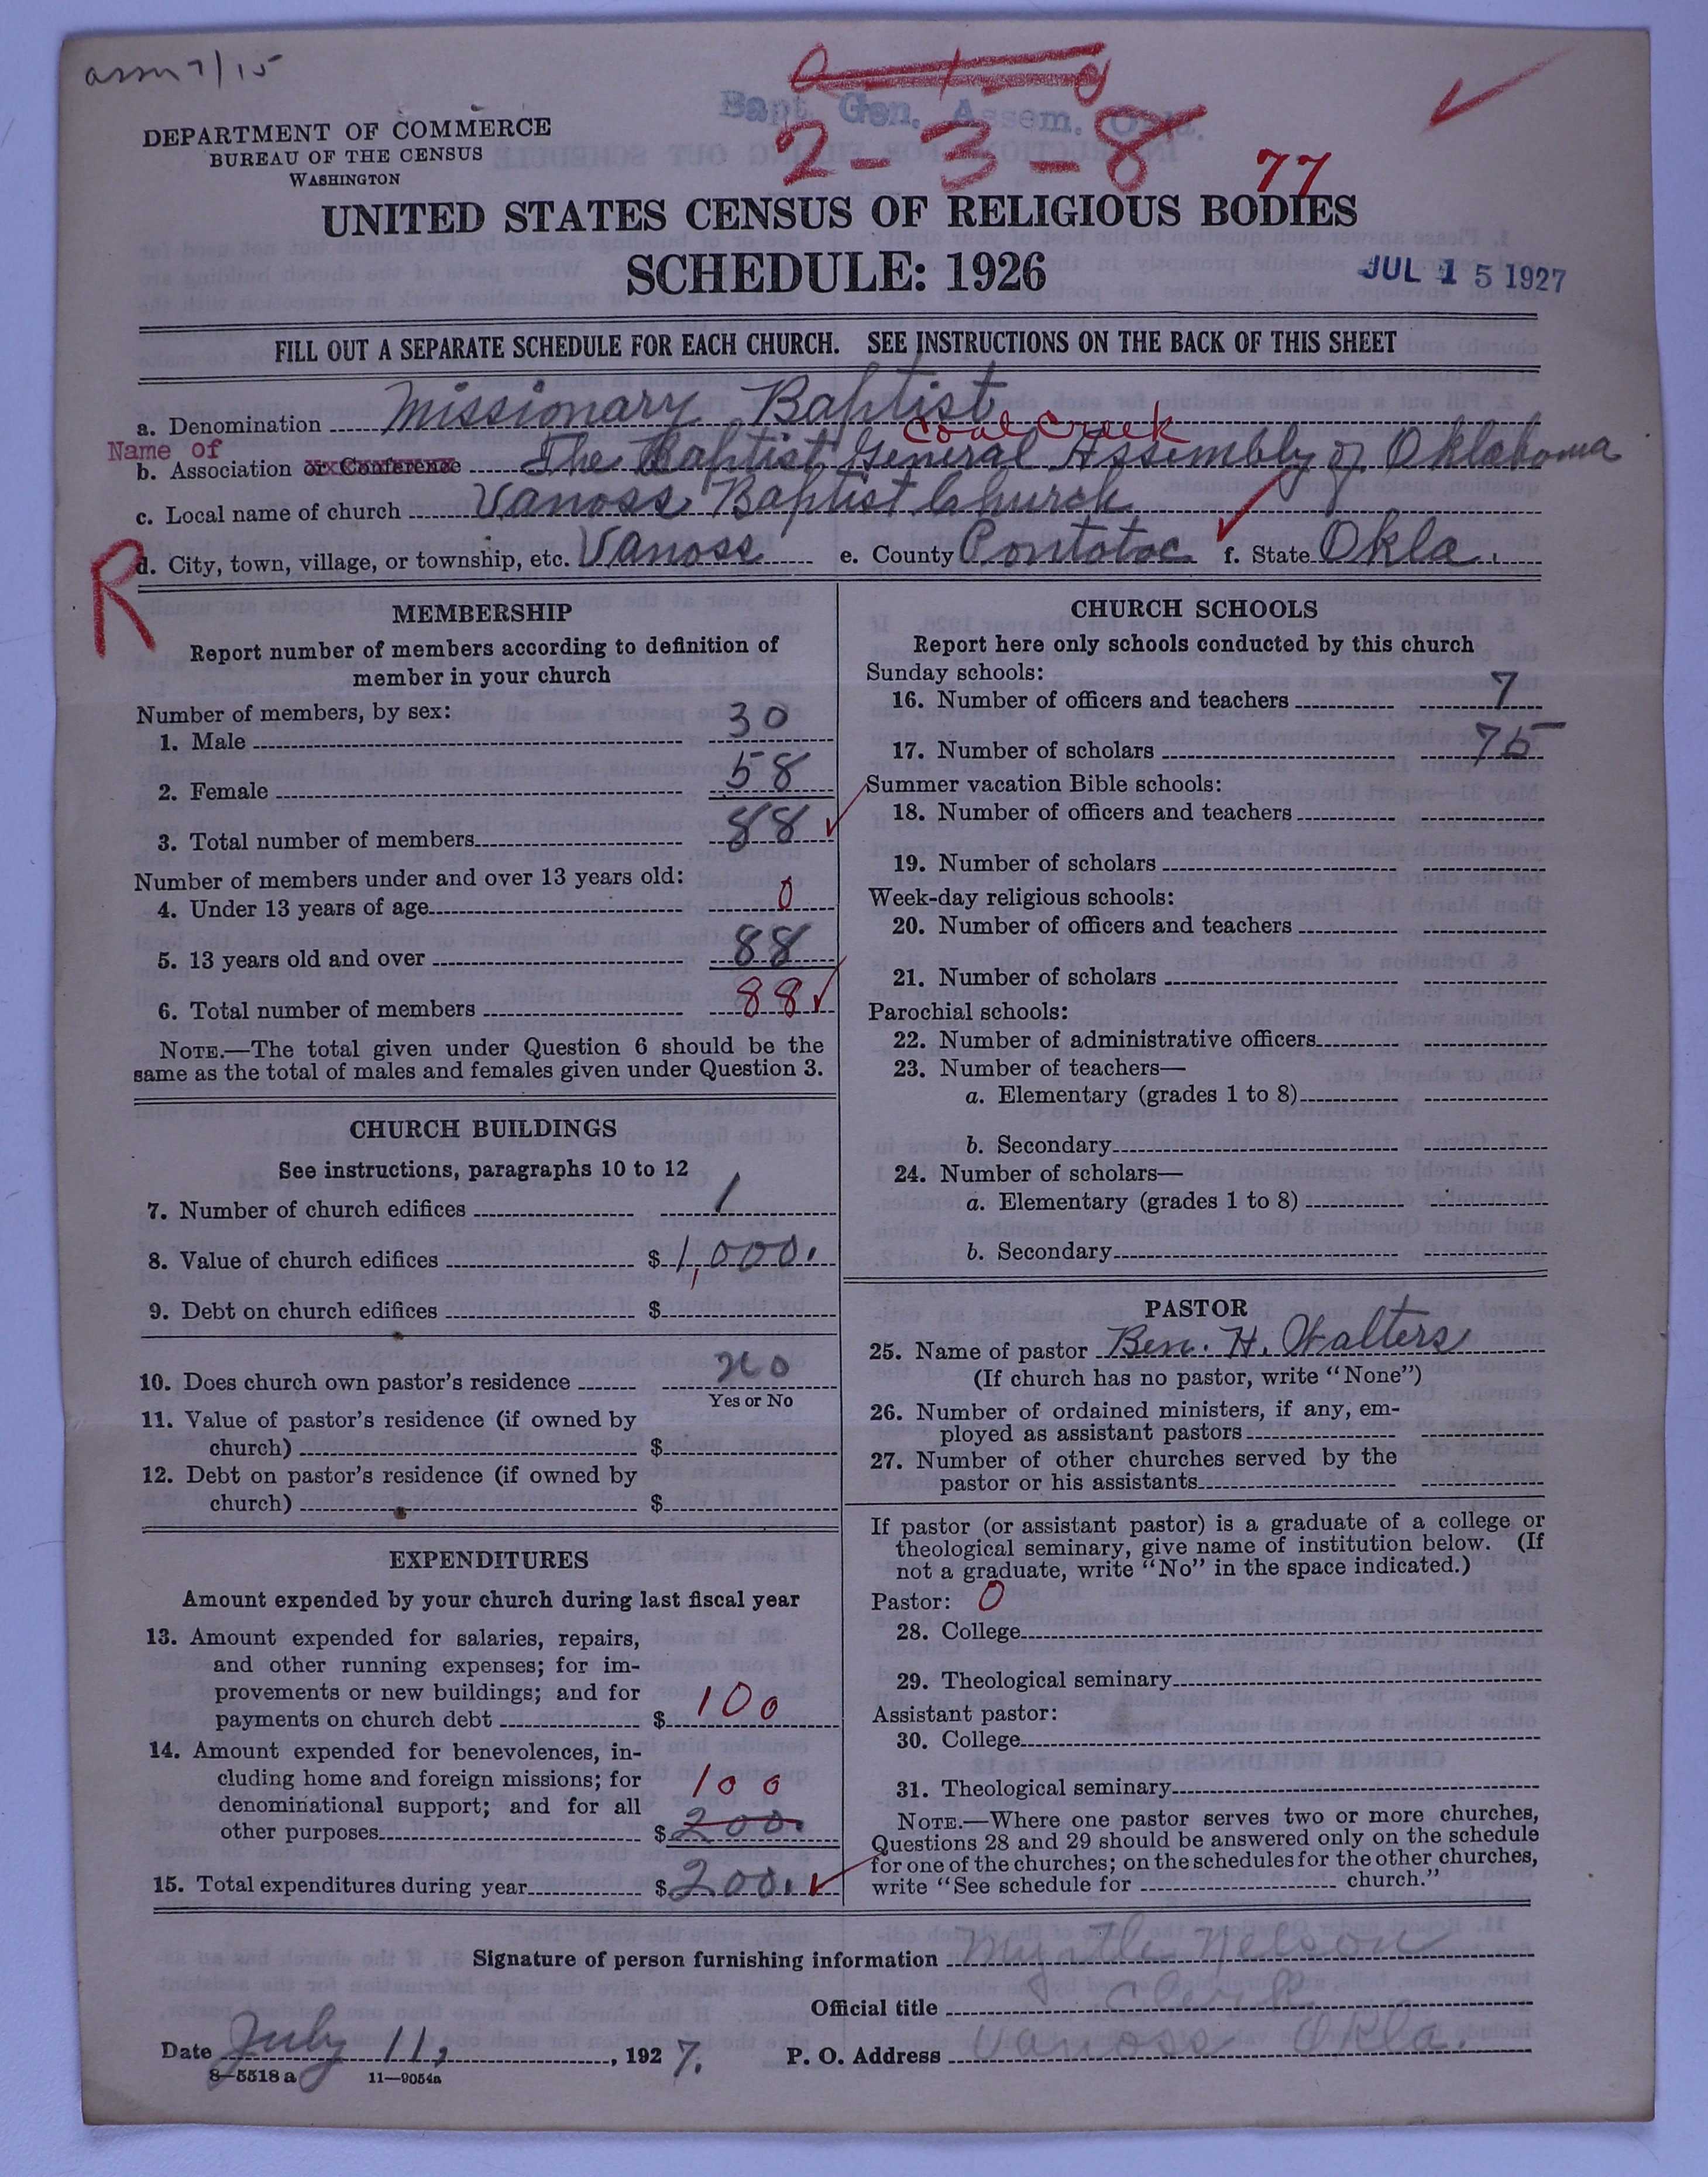 assn 7/15
Bapt. Gen. Assem. Okla.
2-3-8
77
DEPARTMENT OF COMMERCE
BUREAU OF THE CENSUS
WASHINGTON
UNITED STATES CENSUS OF RELIGIOUS BODIES
SCHEDULE: 1926
JUL 15 1927
FILL OUT A SEPARATE SCHEDULE FOR EACH CHURCH. SEE INSTRUCTIONS ON THE BACK OF THIS SHEET
a. Denomination Missionary Baptist
Coal Creek
Name of
b. Association or Conference The Baptist General Assembly of Oklahoma
c. Local name of church Vanoss Baptist Church
R
d. City, town, village, or township, etc. Vanoss e. County Pontotoc f. State Okla.
MEMBERSHIP
Report number of members according to definition of
member in your church
Number of members, by sex:
1. Male 30
2. Female 58
3. Total number of members 88
Number of members under and over 13 years old:
4. Under 13 years of age 0
5. 13 years old and over 88
6. Total number of members 88
NOTE.—The total given under Question 6 should be the
same as the total of males and females given under Question 3.
CHURCH BUILDINGS
See instructions, paragraphs 10 to 12
7. Number of church edifices 1
8. Value of church edifices $1,000.
9. Debt on church edifices $
10. Does church own pastor's residence no
Yes or No
11. Value of pastor's residence (if owned by
church) $
12. Debt on pastor's residence (if owned by
church) $
EXPENDITURES
Amount expended by your church during last fiscal year
13. Amount expended for salaries, repairs,
and other running expenses; for im-
provements or new buildings; and for
payments on church debt $ 100
14. Amount expended for benevolences, in-
cluding home and foreign missions; for
denominational support; and for all 100
other purposes $ 200.
15. Total expenditures during year $ 200.
CHURCH SCHOOLS
Report here only schools conducted by this church
Sunday schools:
16. Number of officers and teachers 7
17. Number of scholars 75
Summer vacation Bible schools:
18. Number of officers and teachers
19. Number of scholars
Week-day religious schools:
20. Number of officers and teachers
21. Number of scholars
Parochial schools:
22. Number of administrative officers
23. Number of teachers—
a. Elementary (grades 1 to 8)
b. Secondary
24. Number of scholars—
a. Elementary (grades 1 to 8)
b. Secondary
PASTOR
25. Name of pastor Ben. H. Walters
(If church has no pastor, write "None")
26. Number of ordained ministers, if any, em-
ployed as assistant pastors
27. Number of other churches served by the
pastor or his assistants
If pastor (or assistant pastor) is a graduate of a college or
theological seminary, give name of institution below. (If
not a graduate, write "No" in the space indicated.)
Pastor: 0
28. College
29. Theological seminary
Assistant pastor:
30. College
31. Theological seminary
NOTE.—Where one pastor serves two or more churches,
Questions 28 and 29 should be answered only on the schedule
for one of the churches; on the schedules for the other churches,
write "See schedule for church."
Signature of person furnishing information Myrtle Nelson
Official title Clerk
Date July 11, 1927. P. O. Address Vanoss Okla.
8-5518 a 11—9054a